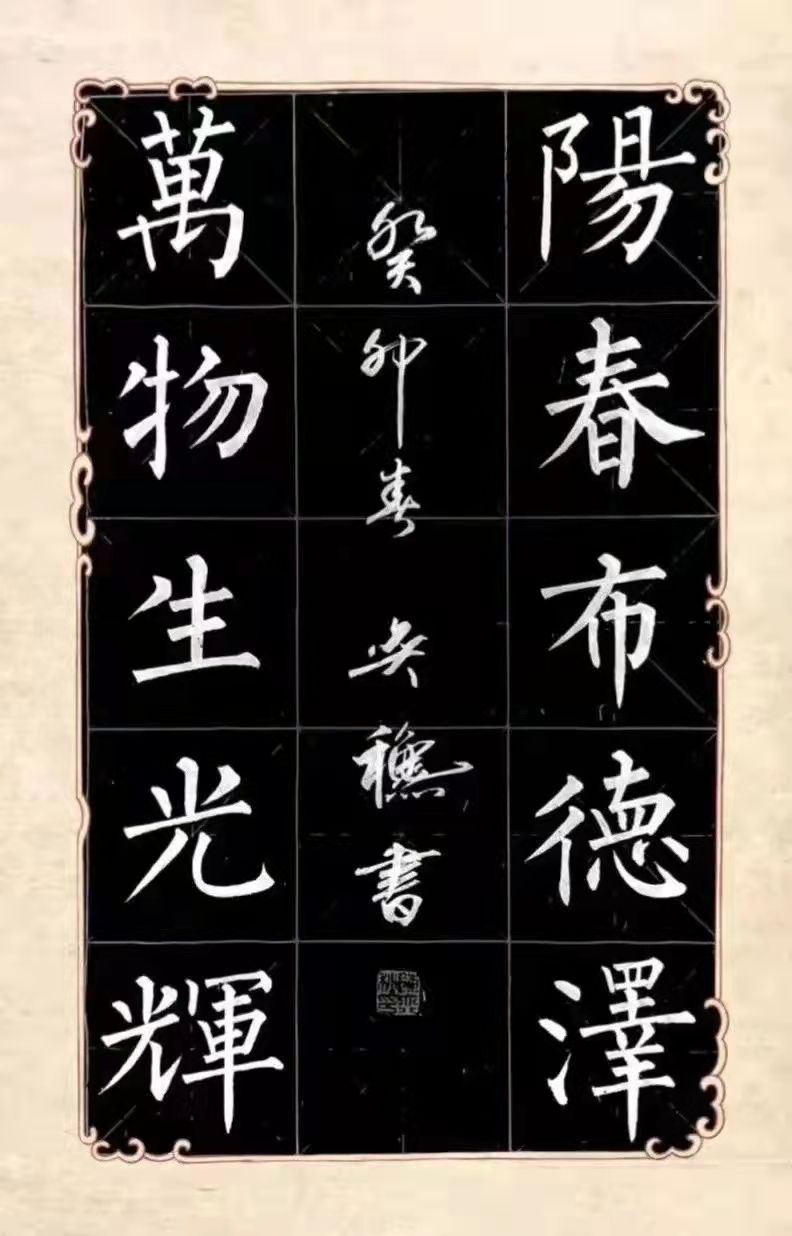 陽春布德澤
癸卯春 書
萬物生光輝